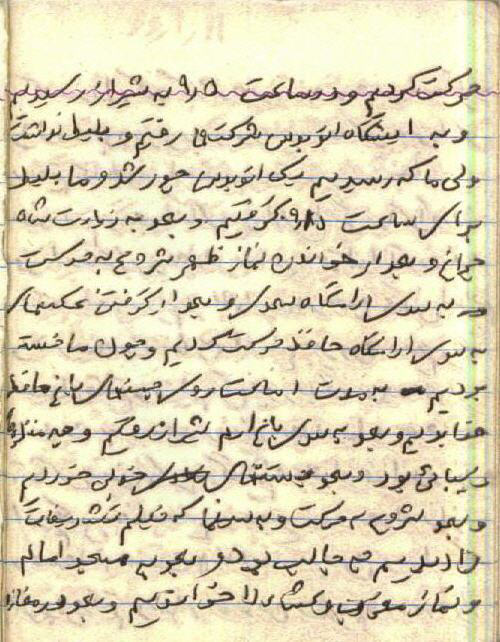 حرکت کردیم و در ساعت ۹/۵ به شیراز رسیدیم
و به ایستگاه اتوبوس شرکت ها رفتیم و بلیط نداشت
ولی ما که رسیدیم یک اتوبوس جور شد و ما بلیط
برای ساعت گرفتیم و بعد به زیارت شاه
چراغ و بعد از خواندن نماز ظهر شروع به حرکت
به سوی آرامگاه سعدی و بعد از گرفتن عکسهای
به سوی آرامگاه حافظ حرکت کردیم و چون ما خسته
بودیم به مدت روی چمنهای باغ حافظ
و بعد به سوی باغ ارم شیراز رفتیم و چه منظره
زیبائی بود و بعد بستنی خوردیم
و بعد شروع به حرکت و به سینما که فیلم
را دیدیم جالب بود و بعد به مسجد امام
و نماز مغرب و عشاء را خواندیم و بعد در مغازه